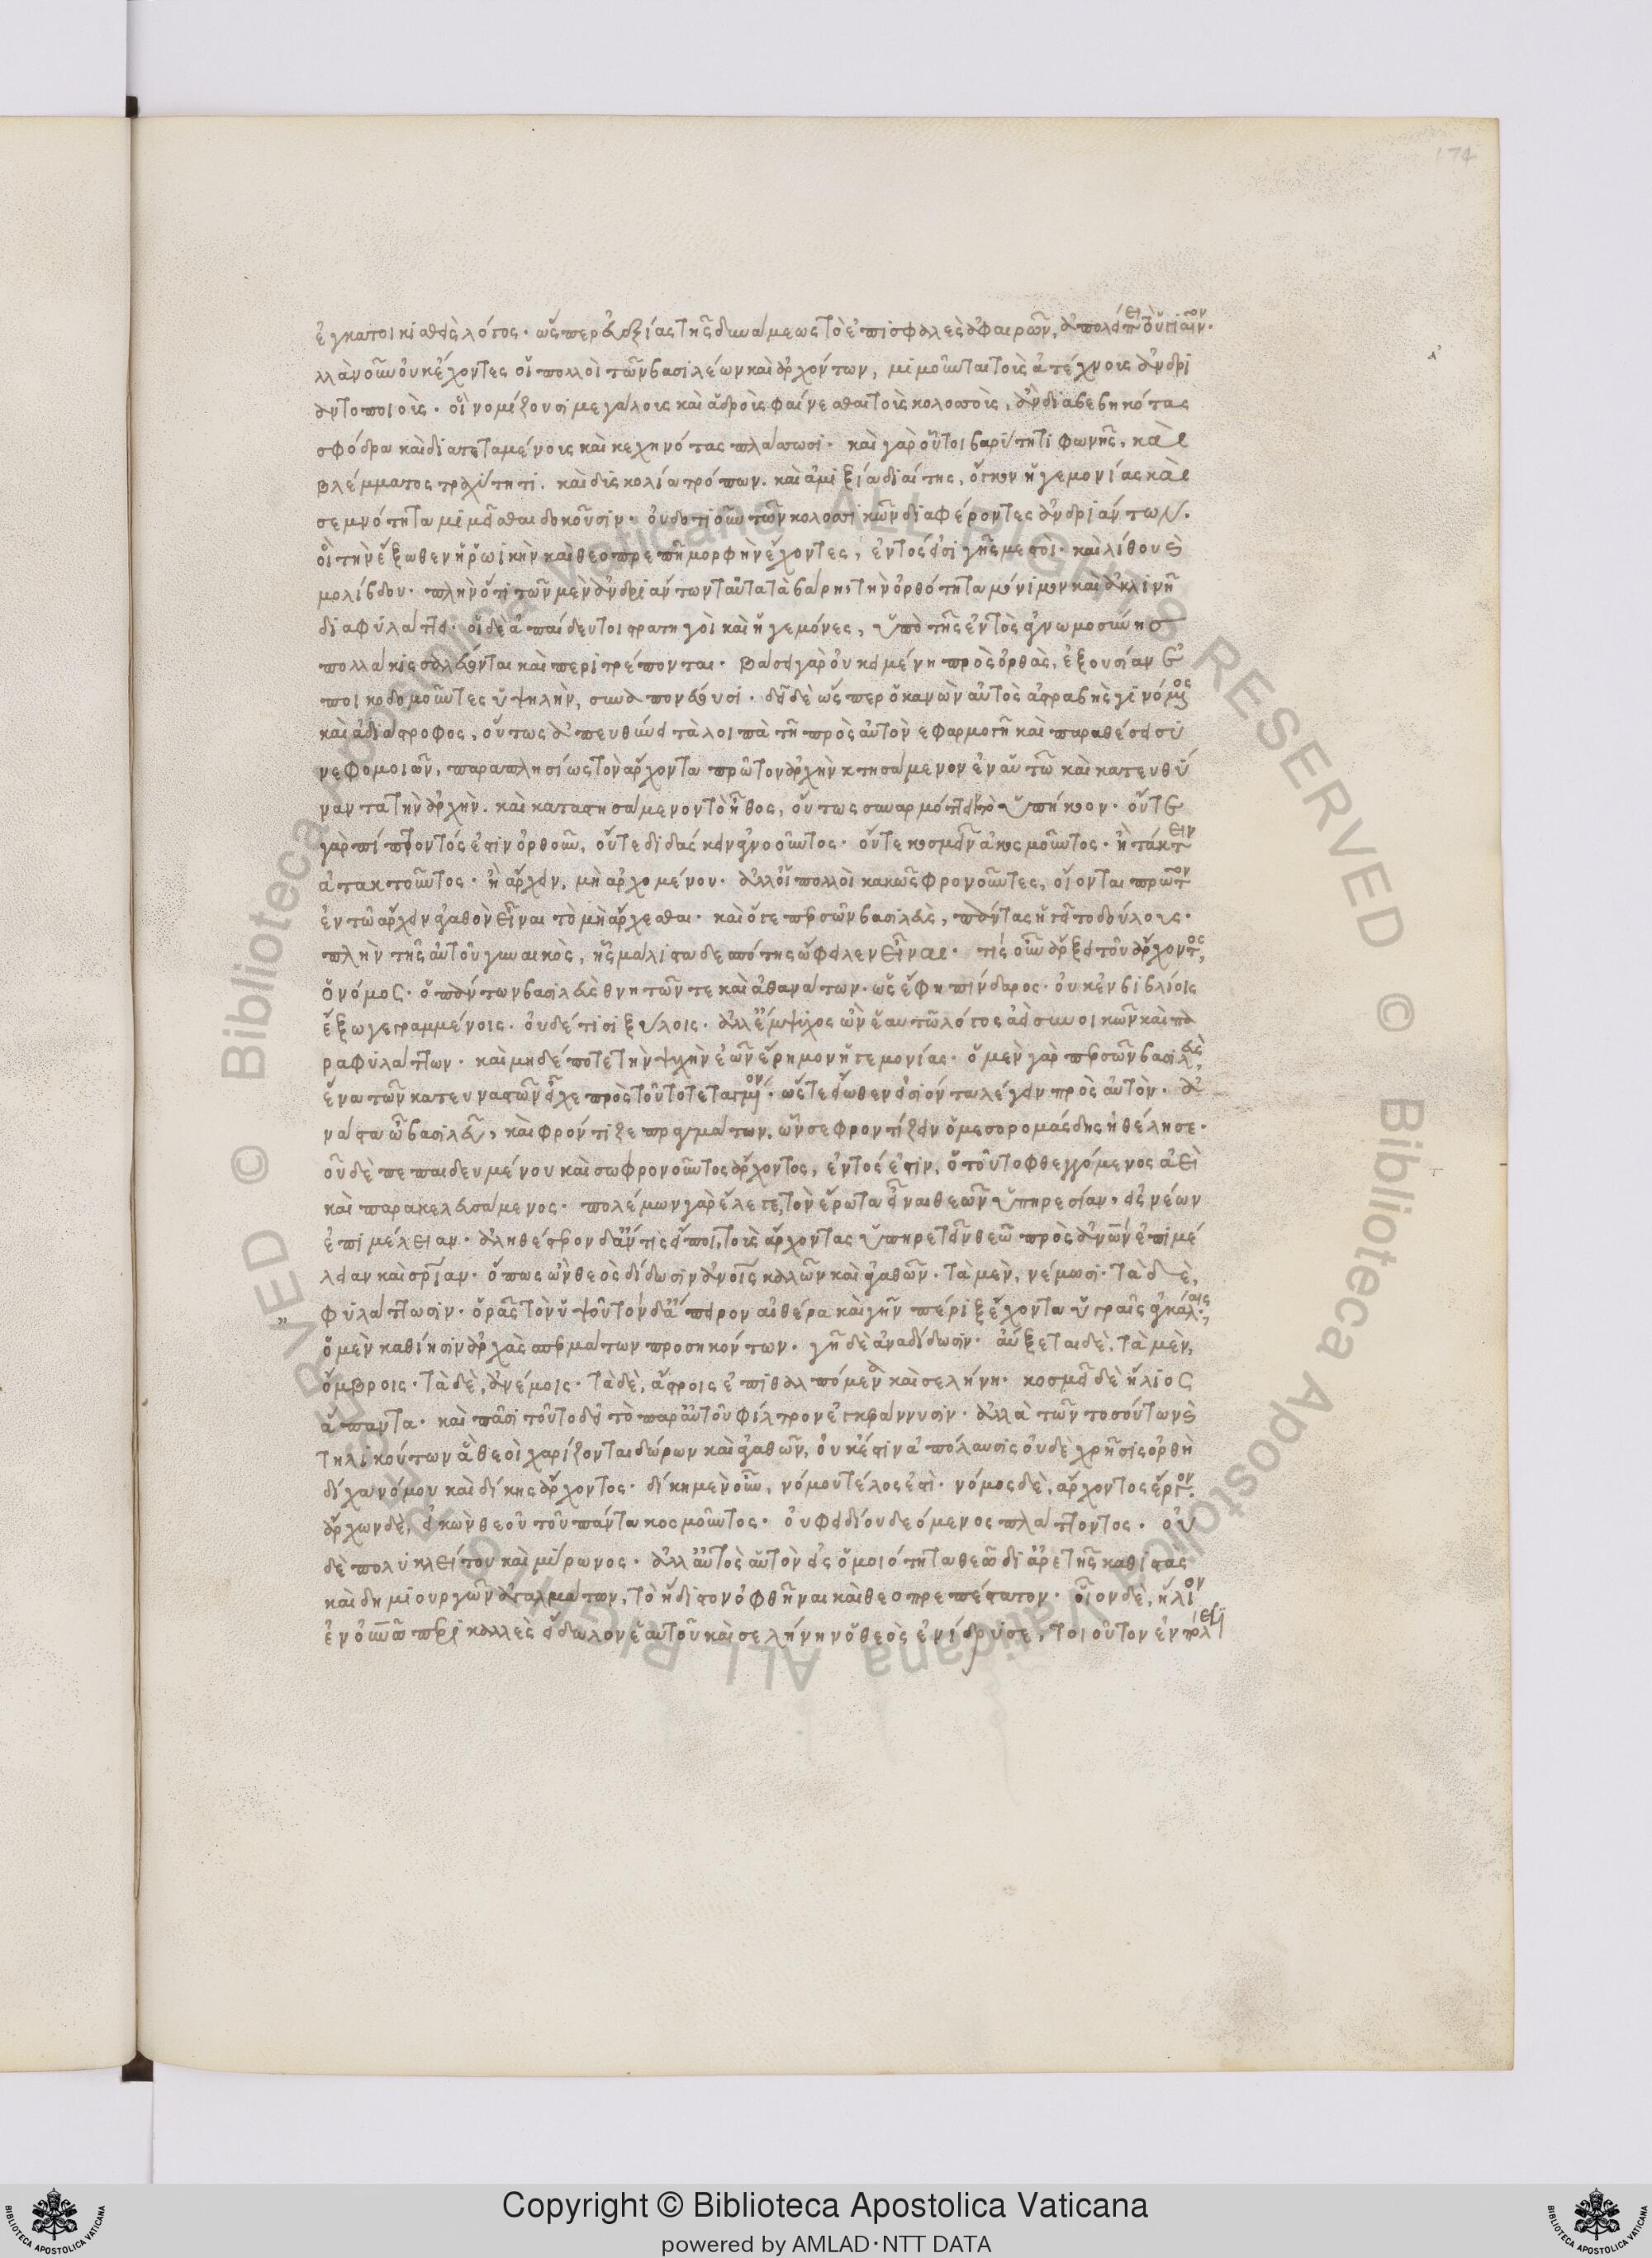 174
ἐγκατοικισθεὶς λόγος· ὥσπερ εὐεξίας τῆς δυνάμεως τὸ ἐπισφαλὲς ἀφαιρῶν, ἀπολείπει τὸ ὑγιαῖνον·
ἀλλὰ νοῦν οὐκ ἔχοντες οἱ πολλοὶ τῶν βασιλέων καὶ ἀρχόντων, μιμοῦνται τοὺς ἀτέχνους ἀνδρι
αντοποιοὺς· οἳ νομίζουσι μεγάλους καὶ ἁδροὺς φαίνεσθαι τοὺς κολοσσοὺς, ἂν διαβεβηκότας
σφόδρα καὶ διατεταμένους καὶ κεχηνότας πλάσωσι· καὶ γὰρ οὗτοι βαρύτητι φωνῆς, καὶ
βλέμματος τραχύτητι. καὶ δυσκολίᾳ τρόπων. καὶ ἀμιξίᾳ διαίτης, ὄγκον ἡγεμονίας καὶ
σεμνότητα μιμεῖσθαι δοκοῦσιν· οὐδοτιοῦν τῶν κολοσσικῶν διαφέροντες ἀνδριάντων.
οἳ τὴν ἔξωθεν ἡρωικὴν καὶ θεοπρεπῆ μορφὴν ἔχοντες, ἐντός εἰσι γῆς μεστοὶ· καὶ λίθου καὶ
μολίβδου· πλὴν ὅτι τῶν μὲν ἀνδριάντων ταῦτα τὰ βάρη, τὴν ὀρθότητα μόνιμον καὶ ἀκλινῆ
διαφυλάττει· οἱ δὲ ἀπαίδευτοι στρατηγοὶ καὶ ἡγεμόνες, ὑπὸ τῆς ἐντὸς ἀγνωμοσύνης
πολλάκις σαλεύονται καὶ περιτρέπονται· βάσει γὰρ οὐ κειμένῃ πρὸς ὀρθὰς, ἐξουσίαν ἐ
ποικοδομοῦντες ὑψηλὴν, συναπονεύουσι· δεῖ δὲ ὥσπερ ὁ κανὼν αὐτὸς ἀστραβὴς γενόμενος
καὶ ἀδιάστροφος, οὕτως ἀπευθύνει τὰ λοιπὰ τῇ πρὸς αὐτὸν ἐφαρμογῇ καὶ παραθέσει συ
νεφομοιῶν, παραπλησίως τὸν ἄρχοντα πρῶτον ἀρχὴν κτησάμενον ἐν αὑτῷ καὶ κατευθύ
ναντα τὴν ἀρχὴν. καὶ καταστησάμενον τὸ ἦθος, οὕτως συναρμόττειν τὸ ὑπήκοον· οὔτε
γὰρ πίπτοντός ἐστιν ὀρθοῦν, οὔτε διδάσκειν ἀγνοοῦντος· οὔτε κοσμεῖν ἀκοσμοῦντος· ἢ τάττειν
ἀτακτοῦντος· ἢ ἄρχειν, μὴ ἀρχομένου· ἀλλ᾽ οἱ πολλοὶ κακῶς φρονοῦντες, οἴονται πρῶτον
ἐν τῷ ἄρχειν ἀγαθὸν εἶναι τὸ μὴ ἄρχεσθαι· καὶ ὅγε περσῶν βασιλεὺς, πάντας ἡγεῖτο δούλους·
πλὴν τῆς αὑτοῦ γυναικὸς, ἧς μάλιστα δεσπότης ὤφειλεν εἶναι· τίς οὖν ἄρξει τοῦ ἄρχοντος,
ὁ νόμος· ὁ πάντων βασιλεὺς θνητῶν τε καὶ ἀθανάτων· ὡς ἔφη πίνδαρος· οὐκ ἐν βιβλίοις
ἔξω γεγραμμένοις· οὐδέ τισι ξύλοις· ἀλλ᾽ ἔμψυχος ὢν ἑαυτῷ λόγος ἀεὶ συνοικῶν καὶ πα
ραφυλάττων· καὶ μηδέποτε τὴν ψυχὴν ἐῶν ἔρημον ἡγεμονίας· ὁ μὲν γὰρ περσῶν βασιλεὺς,
ἕνα τῶν κατευναστῶν εἶχε πρὸς τοῦτο τεταγμένον· ὥστε ἕωθεν εἰσιόντα λέγειν πρὸς αὐτὸν· ἀ
νάστα ὦ βασιλεῦ, καὶ φρόντιζε πραγμάτων, ὧν σε φροντίζειν ὁ μεσορομάσδης ἠθέλησε·
τοῦ δὲ πεπαιδευμένου καὶ σωφρονοῦντος ἄρχοντος, ἐντός ἐστιν, ὁ τοῦτο φθεγγόμενος ἀεὶ
καὶ παρακελευσάμενος· πολέμων γὰρ ἔλεγε, τὸν ἔρωτα εἶναι θεῶν ὑπηρεσίαν, εἰς νέων
ἐπιμέλειαν· ἀληθέστερον δ᾽ ἄν τις εἴποι, τοὺς ἄρχοντας ὑπηρετεῖν θεῷ πρὸς ἀνθρώπων ἐπιμέ
λειαν καὶ σωτηρίαν· ὅπως ὧν θεὸς δίδωσιν ἀνθρώποις καλῶν καὶ ἀγαθῶν. τὰ μὲν, νέμωσι· τὰ δὲ,
φυλάττωσιν· ὁρᾷς τὸν ὑψοῦ τόνδ᾽ ἄπειρον αἰθέρα καὶ γῆν πέριξ ἔχοντα ὑγραῖς ἀγκάλαις,
ὁ μὲν καθίησιν ἀρχὰς σπερμάτων προσηκόντων. γῆ δὲ ἀναδίδωσιν· αὔξεται δὲ, τὰ μὲν,
ὄμβροις· τὰ δὲ, ἀνέμοις· τὰ δὲ, ἄστροις ἐπιθαλπόμενα καὶ σελήνῃ· κοσμεῖ δὲ ἥλιος
ἅπαντα· καὶ πᾶσι τοῦτο δὴ τὸ παρ᾽ αὑτοῦ φίλτρον ἐγκεράννυσιν· ἀλλὰ τῶν τοσούτων καὶ
τηλικούτων ἃ θεοὶ χαρίζονται δώρων καὶ ἀγαθῶν, οὐκ ἔστιν ἀπόλαυσις οὐδὲ χρῆσις ὀρθὴ
δίχα νόμου καὶ δίκης ἄρχοντος· δίκη μὲν οὖν, νόμου τέλος ἐστὶ· νόμος δὲ, ἄρχοντος ἔργον·
ἄρχων δὲ, εἰκὼν θεοῦ τοῦ πάντα κοσμοῦντος· οὐ φειδίου δεόμενος πλάττοντος· οὐ
δὲ πολυκλείτου καὶ μύρωνος· ἀλλ᾽ αὐτὸς αὑτὸν εἰς ὁμοιότητα θεῷ δι᾽ ἀρετῆς καθιστὰς
καὶ δημιουργῶν ἀγαλμάτων, τὸ ἥδιστον ὀφθῆναι καὶ θεοπρεπέστατον· οἷον δὲ, ἥλιον
ἐν οὐρανῷ περικαλλὲς εἴδωλον ἑαυτοῦ καὶ σελήνην ὁ θεὸς ἐνίδρυσε, τοιοῦτον ἐν πόλεσι